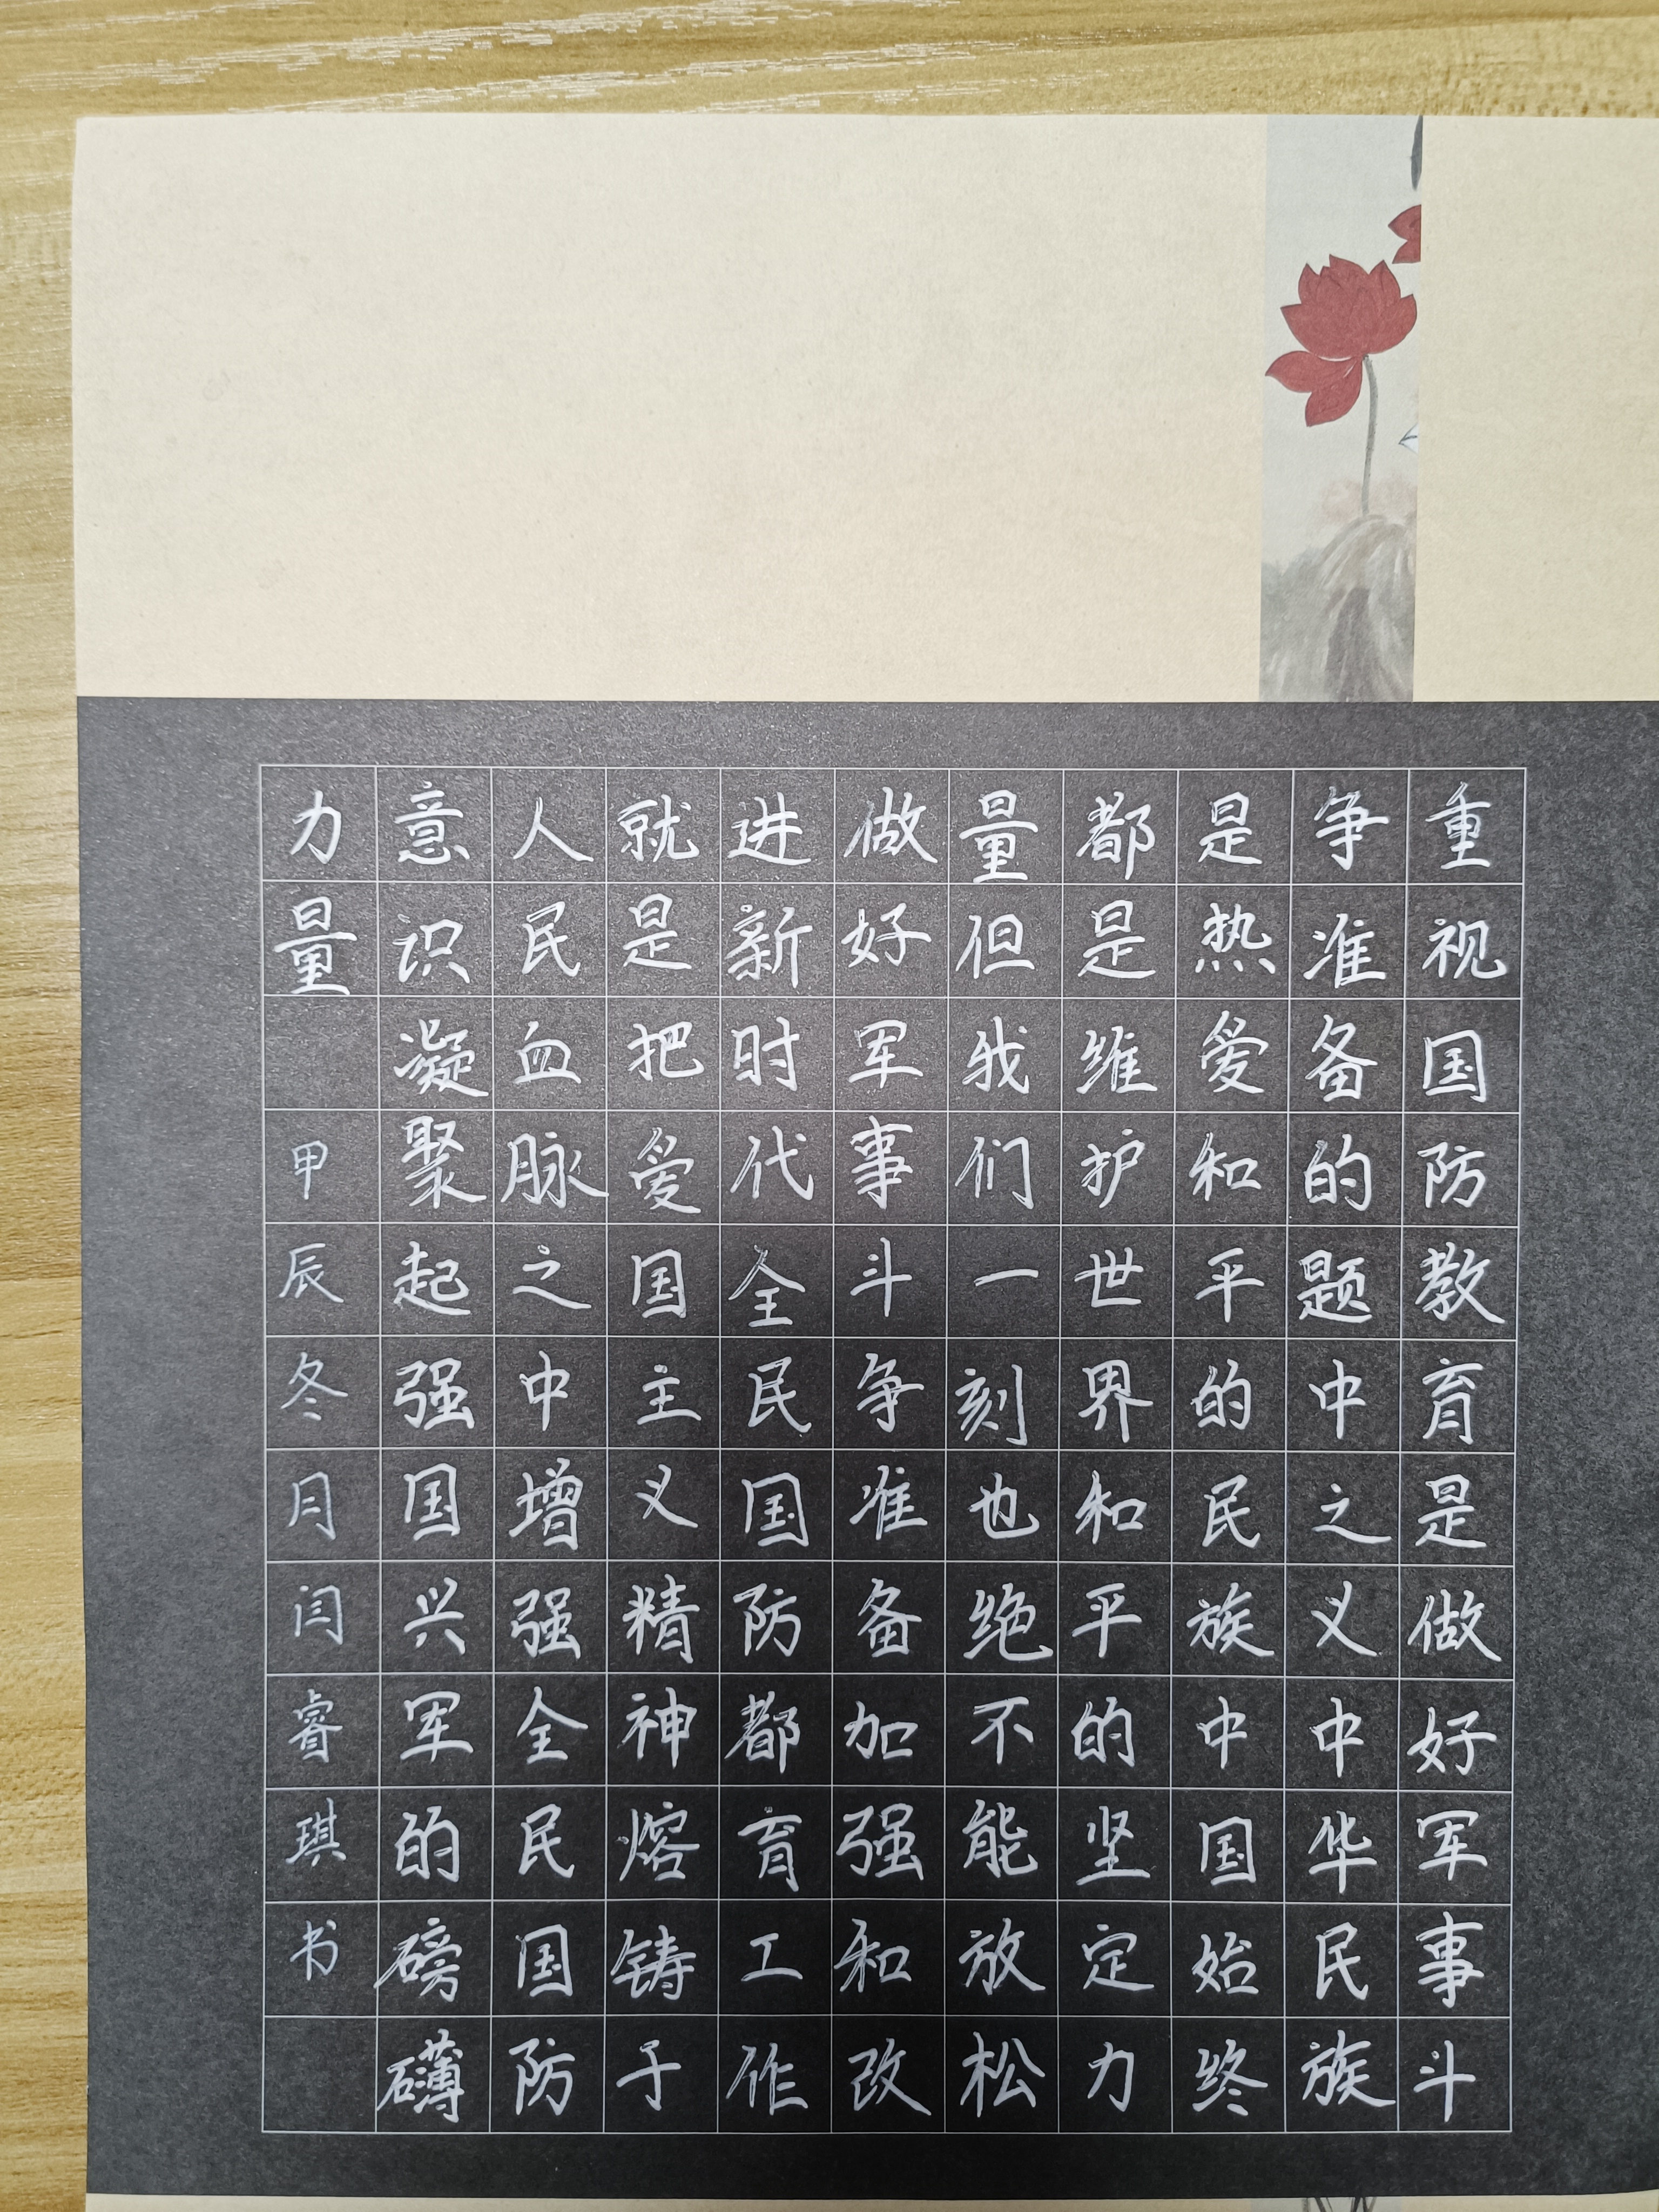 重视国防教育是做好军事斗
争准备的题中之义中华民族
是热爱和平的民族中国始终
都是维护世界和平的坚定力
量但我们一刻也绝不能放松
做好军事斗争准备加强和改
进新时代全民国防都育工作
就是把爱国主义精神熔铸于
人民血脉之中增强全民国防
意识凝聚起强国兴军的磅礴
力量
甲辰冬月闫睿琪书